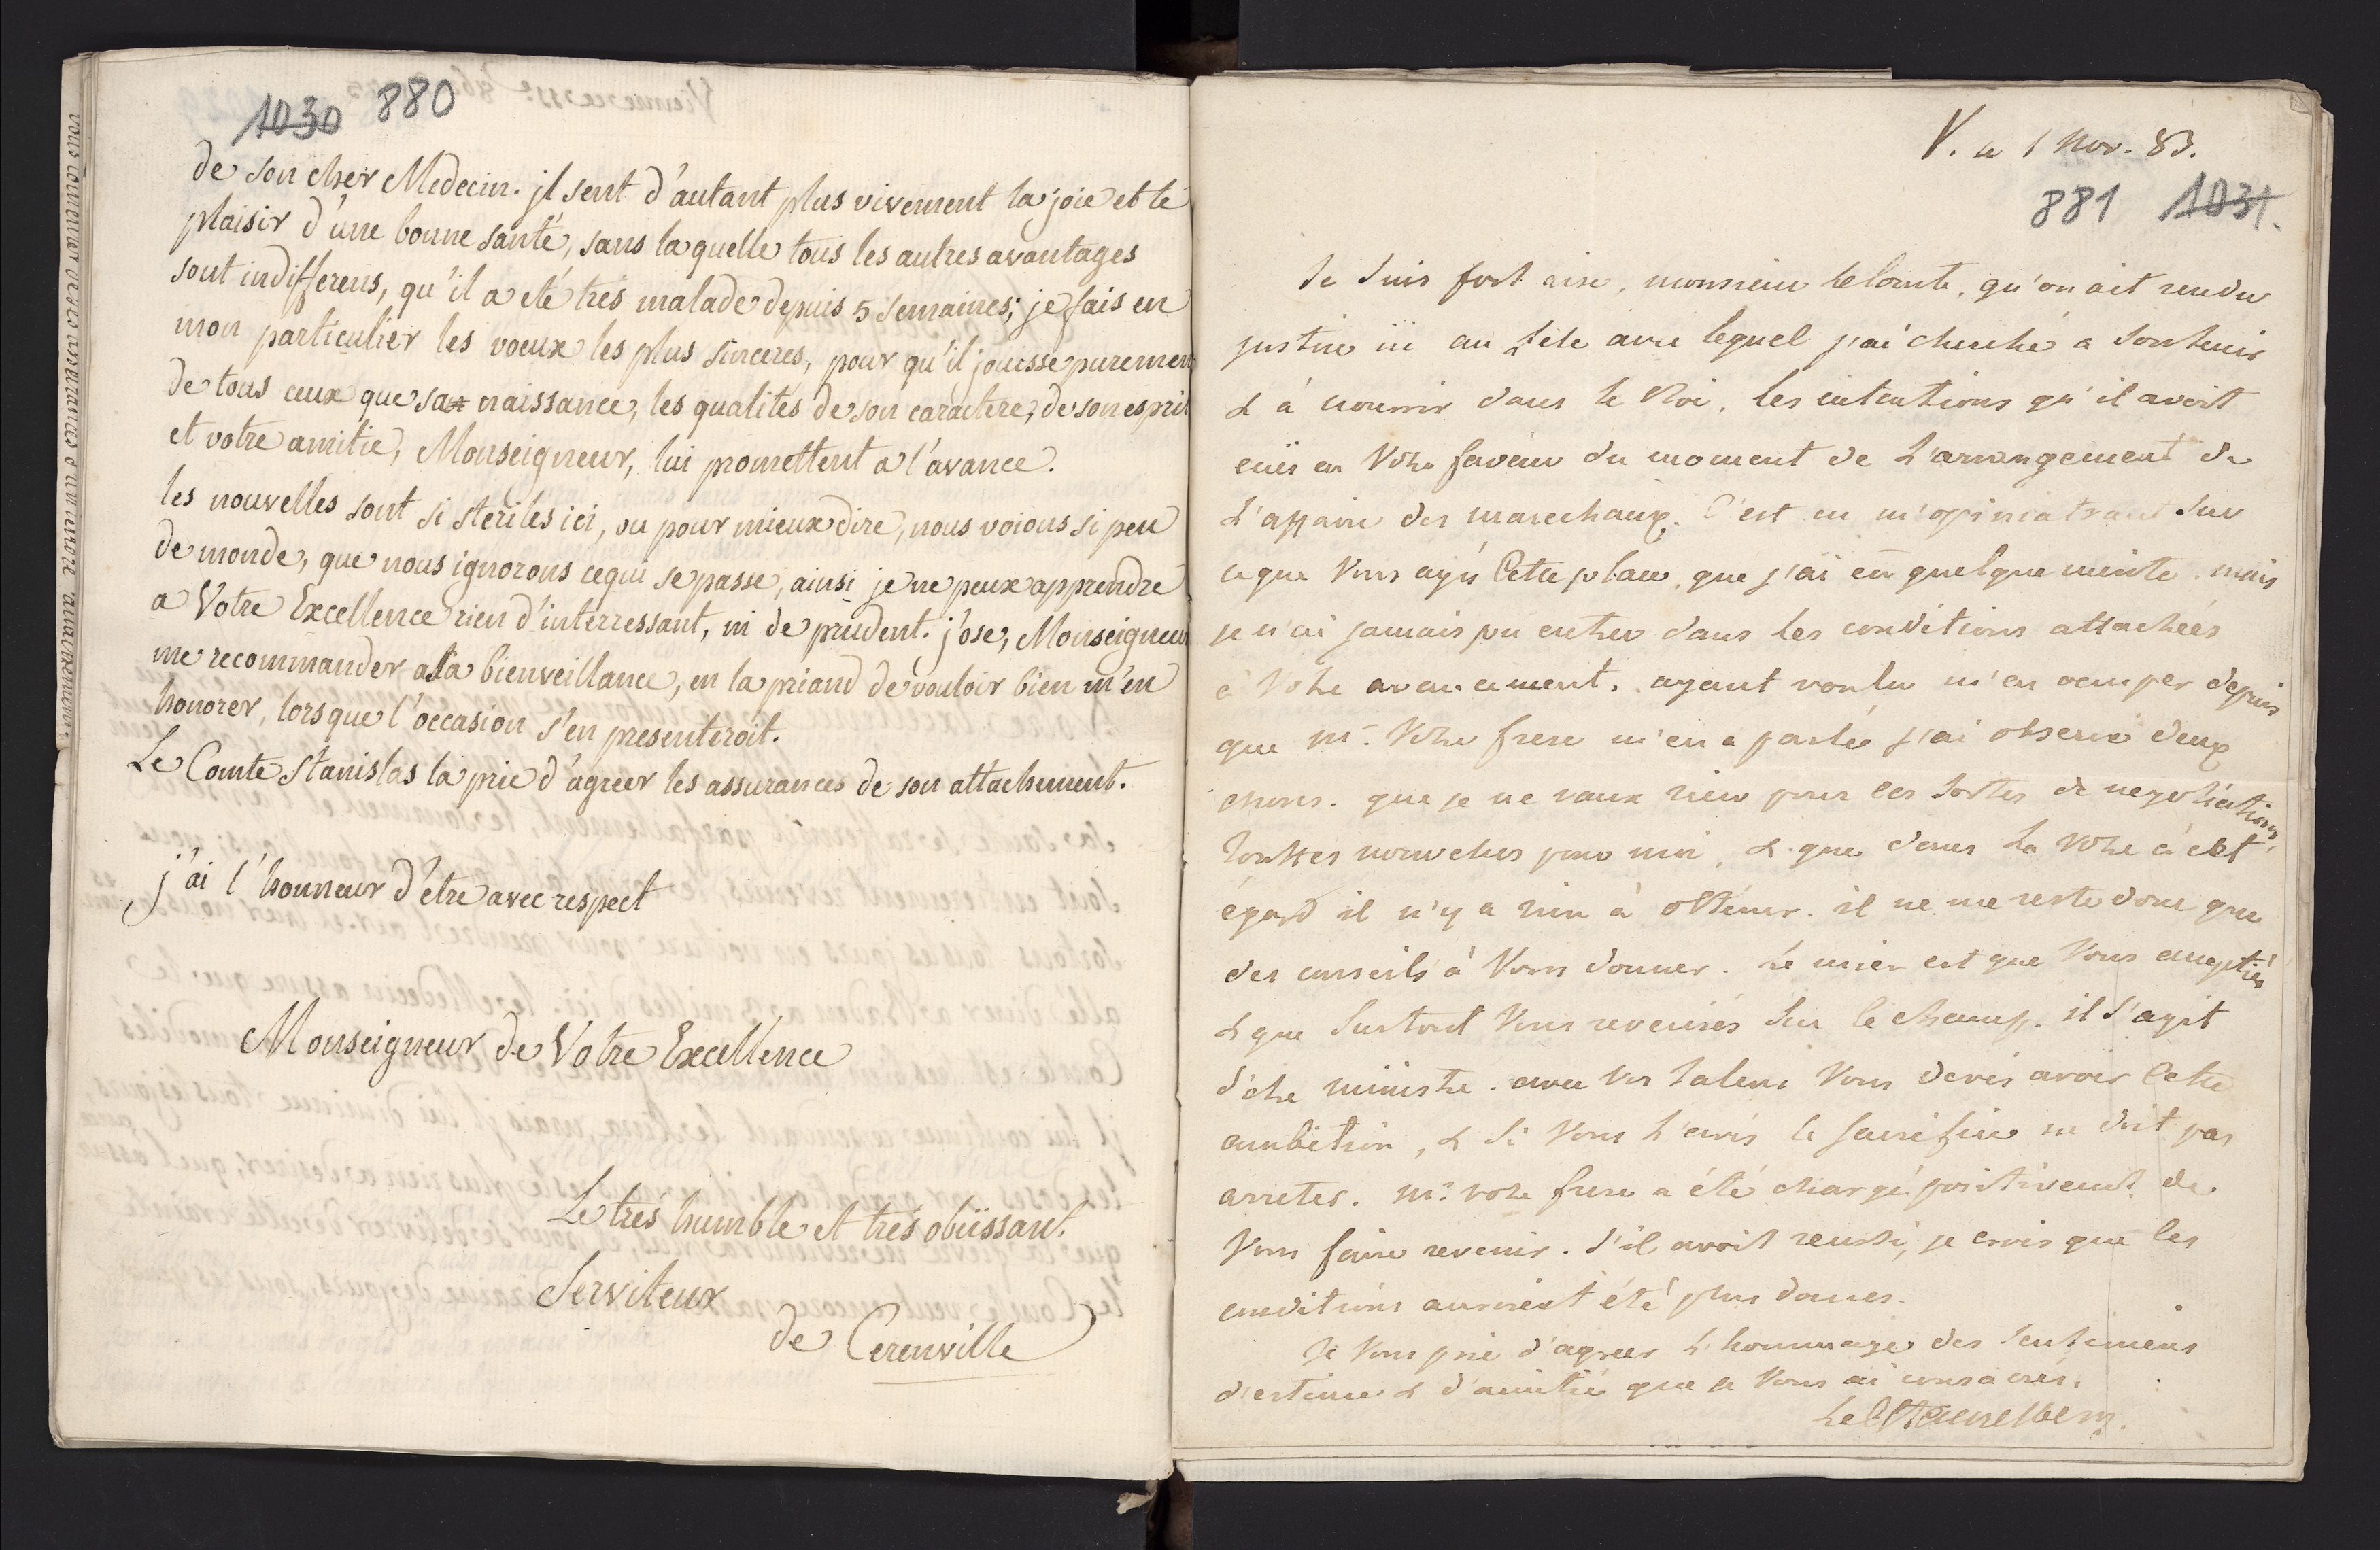 1030 880
de son cher Medecin. jl sent d'autant plus vivement la joie et le
plaisir d'une bonne santé, sans laquelle tous les autres avantages
sont indifferens, qu'il a eté trés malade depuis 5 semaines; je fais en
mon particulier les voeux les plus sinceres, pour qu'il jouisse purement
de tous ceux que sa naissance, les qualités de son caractere, de son esprit
et votre amitié, Monseigneur, lui promettent a l'avance.
les nouvelles sont si steriles ici, ou pour mieux dire, nous voions si peu
de monde, que nous ignorons cequi se passe, ainsi je ne peux apprendre
a Votre Excellence rien d'interressant, ni de prudent. j'ose, Monseigneur
me recommander a sa bienveillance, en la priand de vouloir bien m'en
honorer, lorsque l'occasion s'en presenteroit.
Le Comte Stanislas la prie d'agreer les assurances de son attachement.
j'ai l'honneur d'etre avec respect
Monseigneur de Votre Excellence
Le trés humble et trés obëissant.
Serviteur
de Cerenville
V. ce 1 Nov. 83.
881 1031.
Je suis fort aise, monsieur le Comte, qu'on ait rendu
justice ici au zele avec lequel j'ai cherché a soutenir
& à nourrir dans le Roi, les intentions qu'il avoit
eües en Votre faveur du moment de l'arrangement de
l'affaire des marechaux. C'est en m'opiniatrant sur
ce que Vous ayés Cette place, que j'ai eû quelque merite. mais
je n'ai jamais pu entrer dans les conditions attachées
à Votre avancement. ayant voulu m'en occuper depuis
que Mr. Votre frere m'en a parlé j'ai observé deux
choses. que je ne vaux rien pour ces sortes de negotiations,
toutes nouvelles pour moi, & que dans la Votre à cet
égard il n'y a rien à obtenir. il ne me reste donc que
des conseils à Vous donner. Le mien est que Vous acceptiés
& que surtout Vous reveniés sur le champ. il s'agit
d'etre ministre. avec vos talens Vous devés avoir Cette
ambition, & si Vous l'avés le sacrifice ne doit pas
arreter. Mr. votre frere a été chargé positivement de
Vous faire revenir. s'il avoit reussi, je crois que les
conditions auroient été plus douces.
Je Vous prie d'agreer l'hommage des sentimens
d'estime & d'amitié que je Vous ai consacrés.